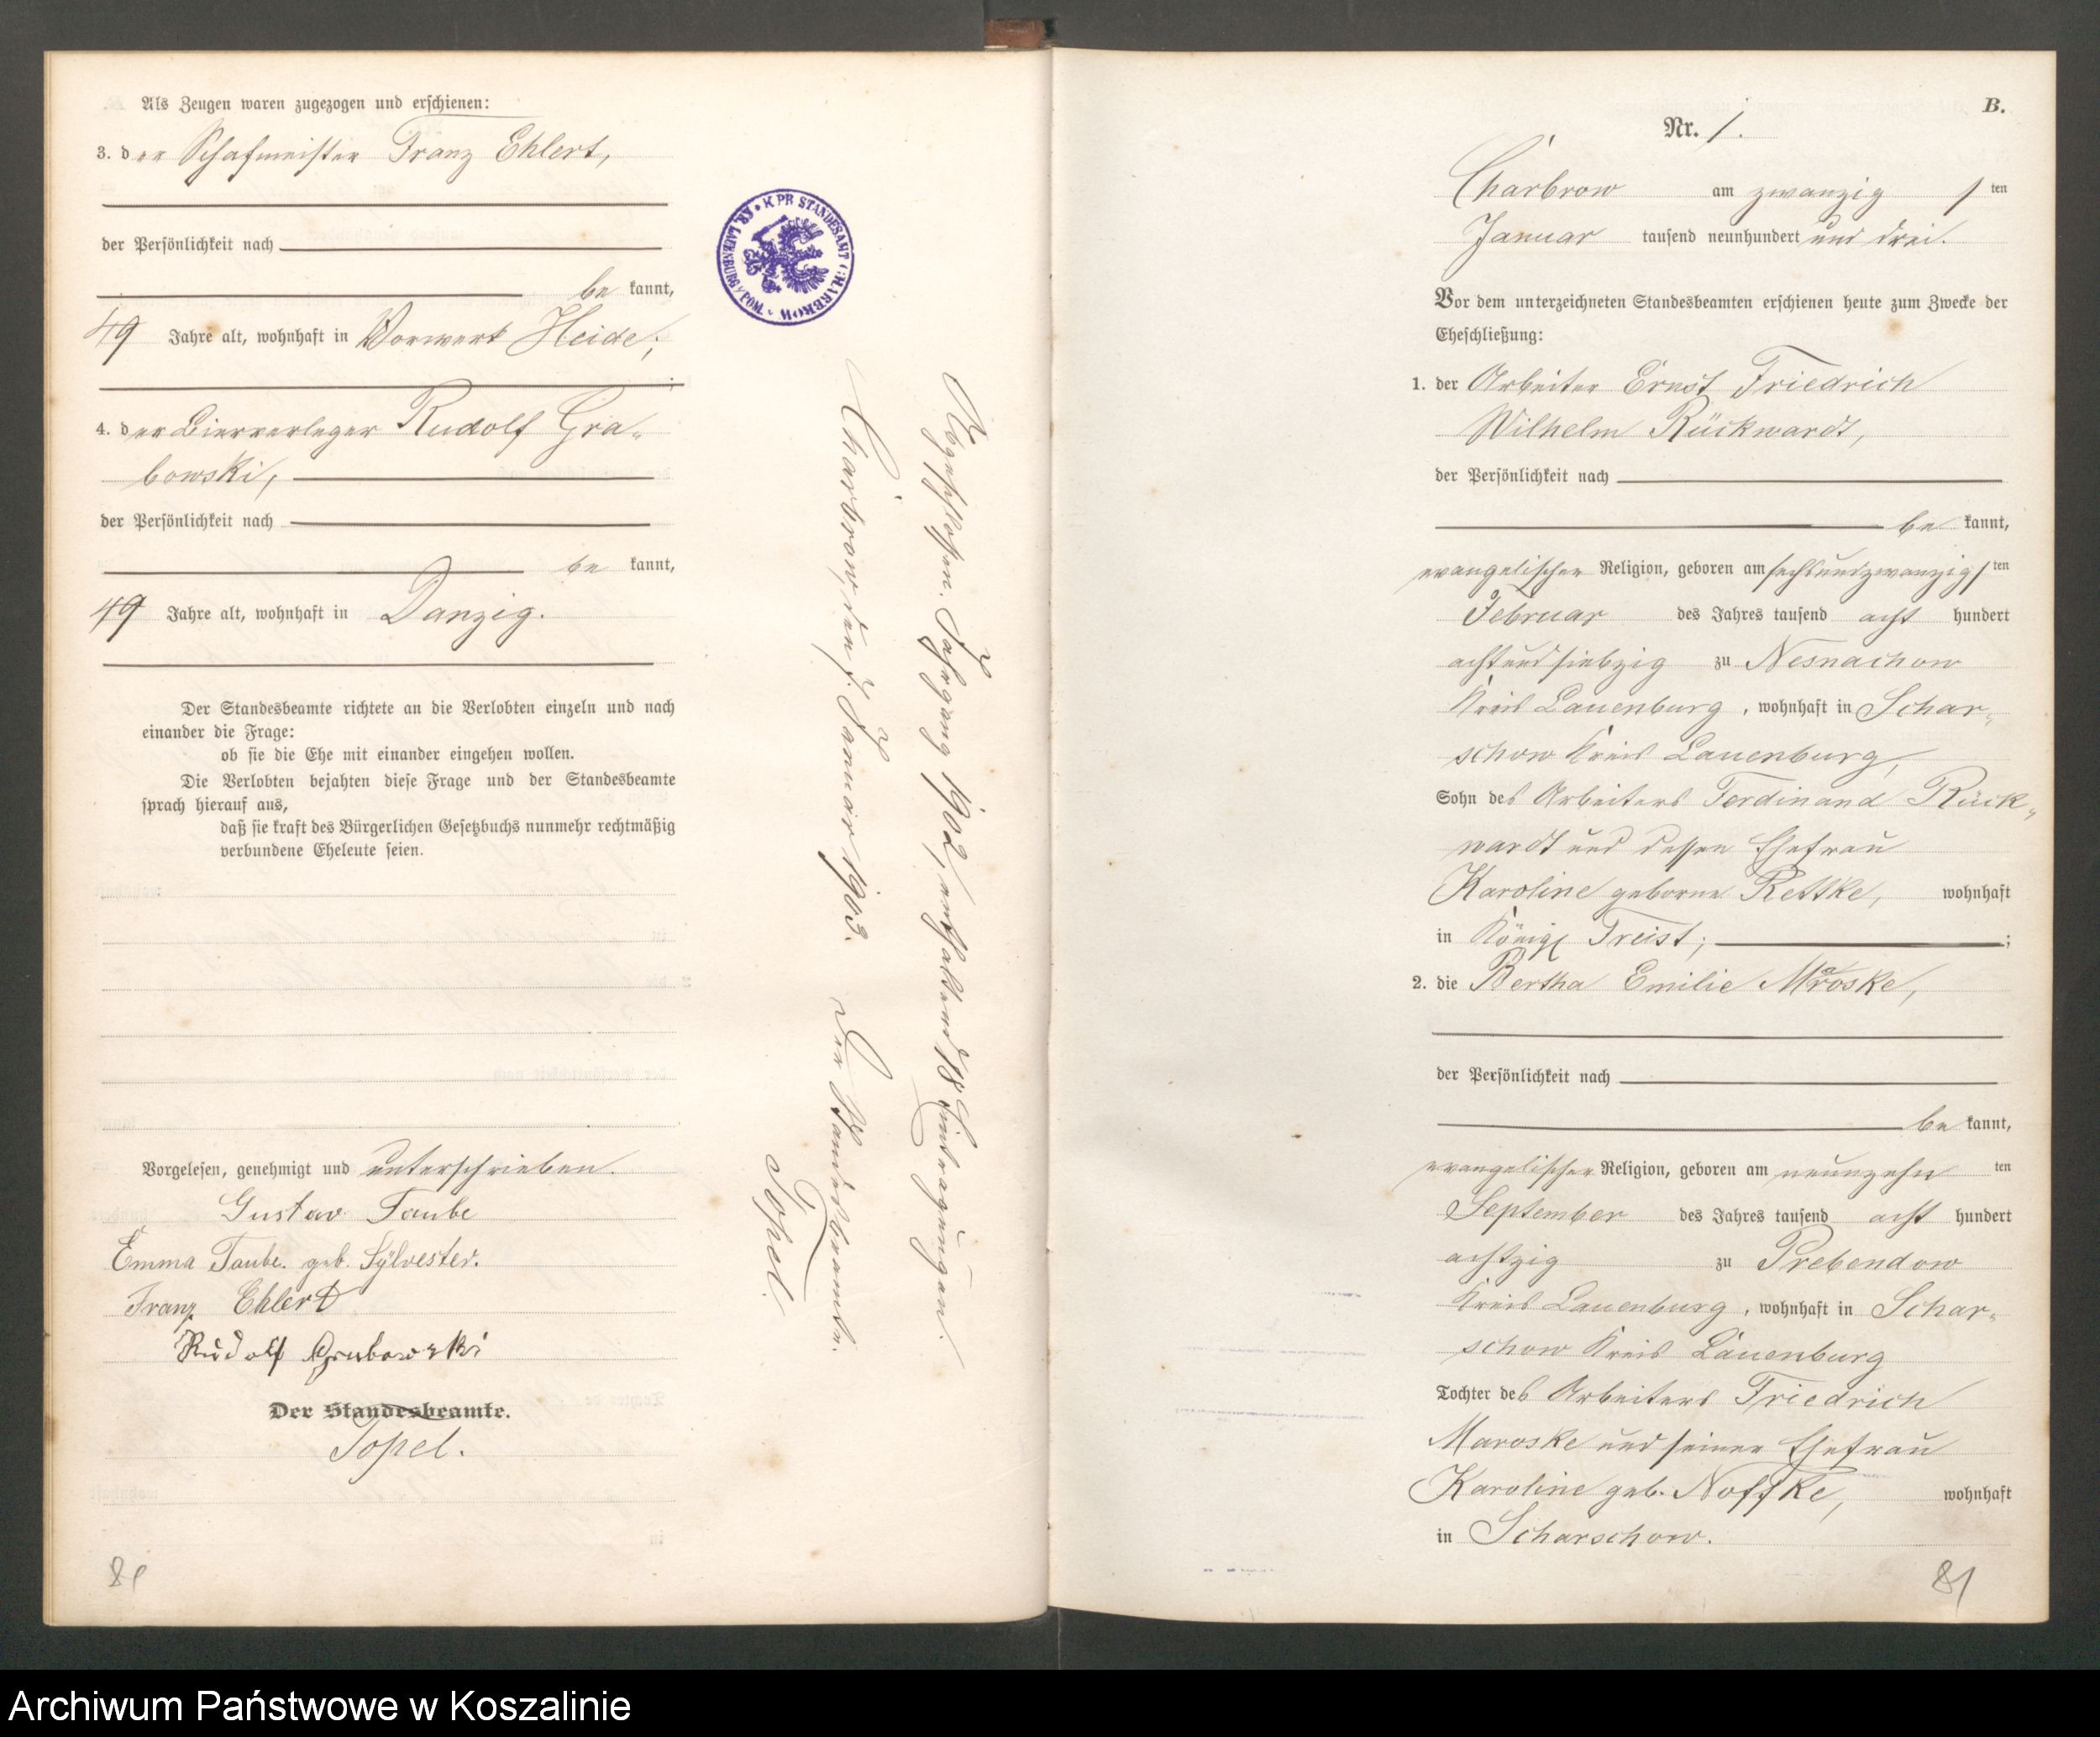 Als Zeugen waren zugezogen und erschienen:
3. der Schafmeister Franz Ehlert,
der Persönlichkeit nach
be kannt,
49 Jahre alt, wohnhaft in Vorwerk Heide;
4. der Bierverleger Rudolf Gra-
bowski,
der Persönlichkeit nach
be kannt,
49 Jahre alt, wohnhaft in Danzig.
Der Standesbeamte richtete an die Verlobten einzeln und nach
einander die Frage:
ob sie die Ehe mit einander eingehen wollen.
Die Verlobten bejahten diese Frage und der Standesbeamte
sprach hierauf aus,
daß sie kraft des Bürgerlichen Gesetzbuchs nunmehr rechtmäßig
verbundene Eheleute seien.
Vorgelesen, genehmigt und unterschrieben.
Gustav Taube
Emma Taube. geb. Sÿlvester.
Franz Ehlert
Rudolf Grabowski
Der Standesbeamte.
Topel.
81
K PR STANDESAMT CHARBROW * KR. LAUENBURG / POM. *
Abgeschlossen. Jahrgang 1902, enthaltend 18 Eintragungen.
Charbrow, den 1. Januar 1903.
Der Standesbeamte.
Topel.
B.
Nr. 1.
Charbrow am zwanzigsten
Januar tausend neunhundert und drei.
Vor dem unterzeichneten Standesbeamten erschienen heute zum Zwecke der
Eheschließung:
1. der Arbeiter Ernst Friedrich
Wilhelm Rückwardt,
der Persönlichkeit nach
be kannt,
evangelischer Religion, geboren am sechsundzwanzigsten
Februar des Jahres tausend acht hundert
achtundsiebzig zu Nesnachow
Kreis Lauenburg, wohnhaft in Schar-
schow Kreis Lauenburg,
Sohn des Arbeiters Ferdinand Rück-
wardt und dessen Ehefrau
Karoline geborne Rettke, wohnhaft
in Königl Freist;
2. die Bertha Emilie Maroske,
der Persönlichkeit nach
be kannt,
evangelischer Religion, geboren am neunzehn ten
September des Jahres tausend acht hundert
achtzig zu Prebendow
Kreis Lauenburg, wohnhaft in Schar-
schow Kreis Lauenburg
Tochter des Arbeiters Friedrich
Maroske und seiner Ehefrau
Karoline geb. Noffke, wohnhaft
in Scharschow.
81
Archiwum Państwowe w Koszalinie